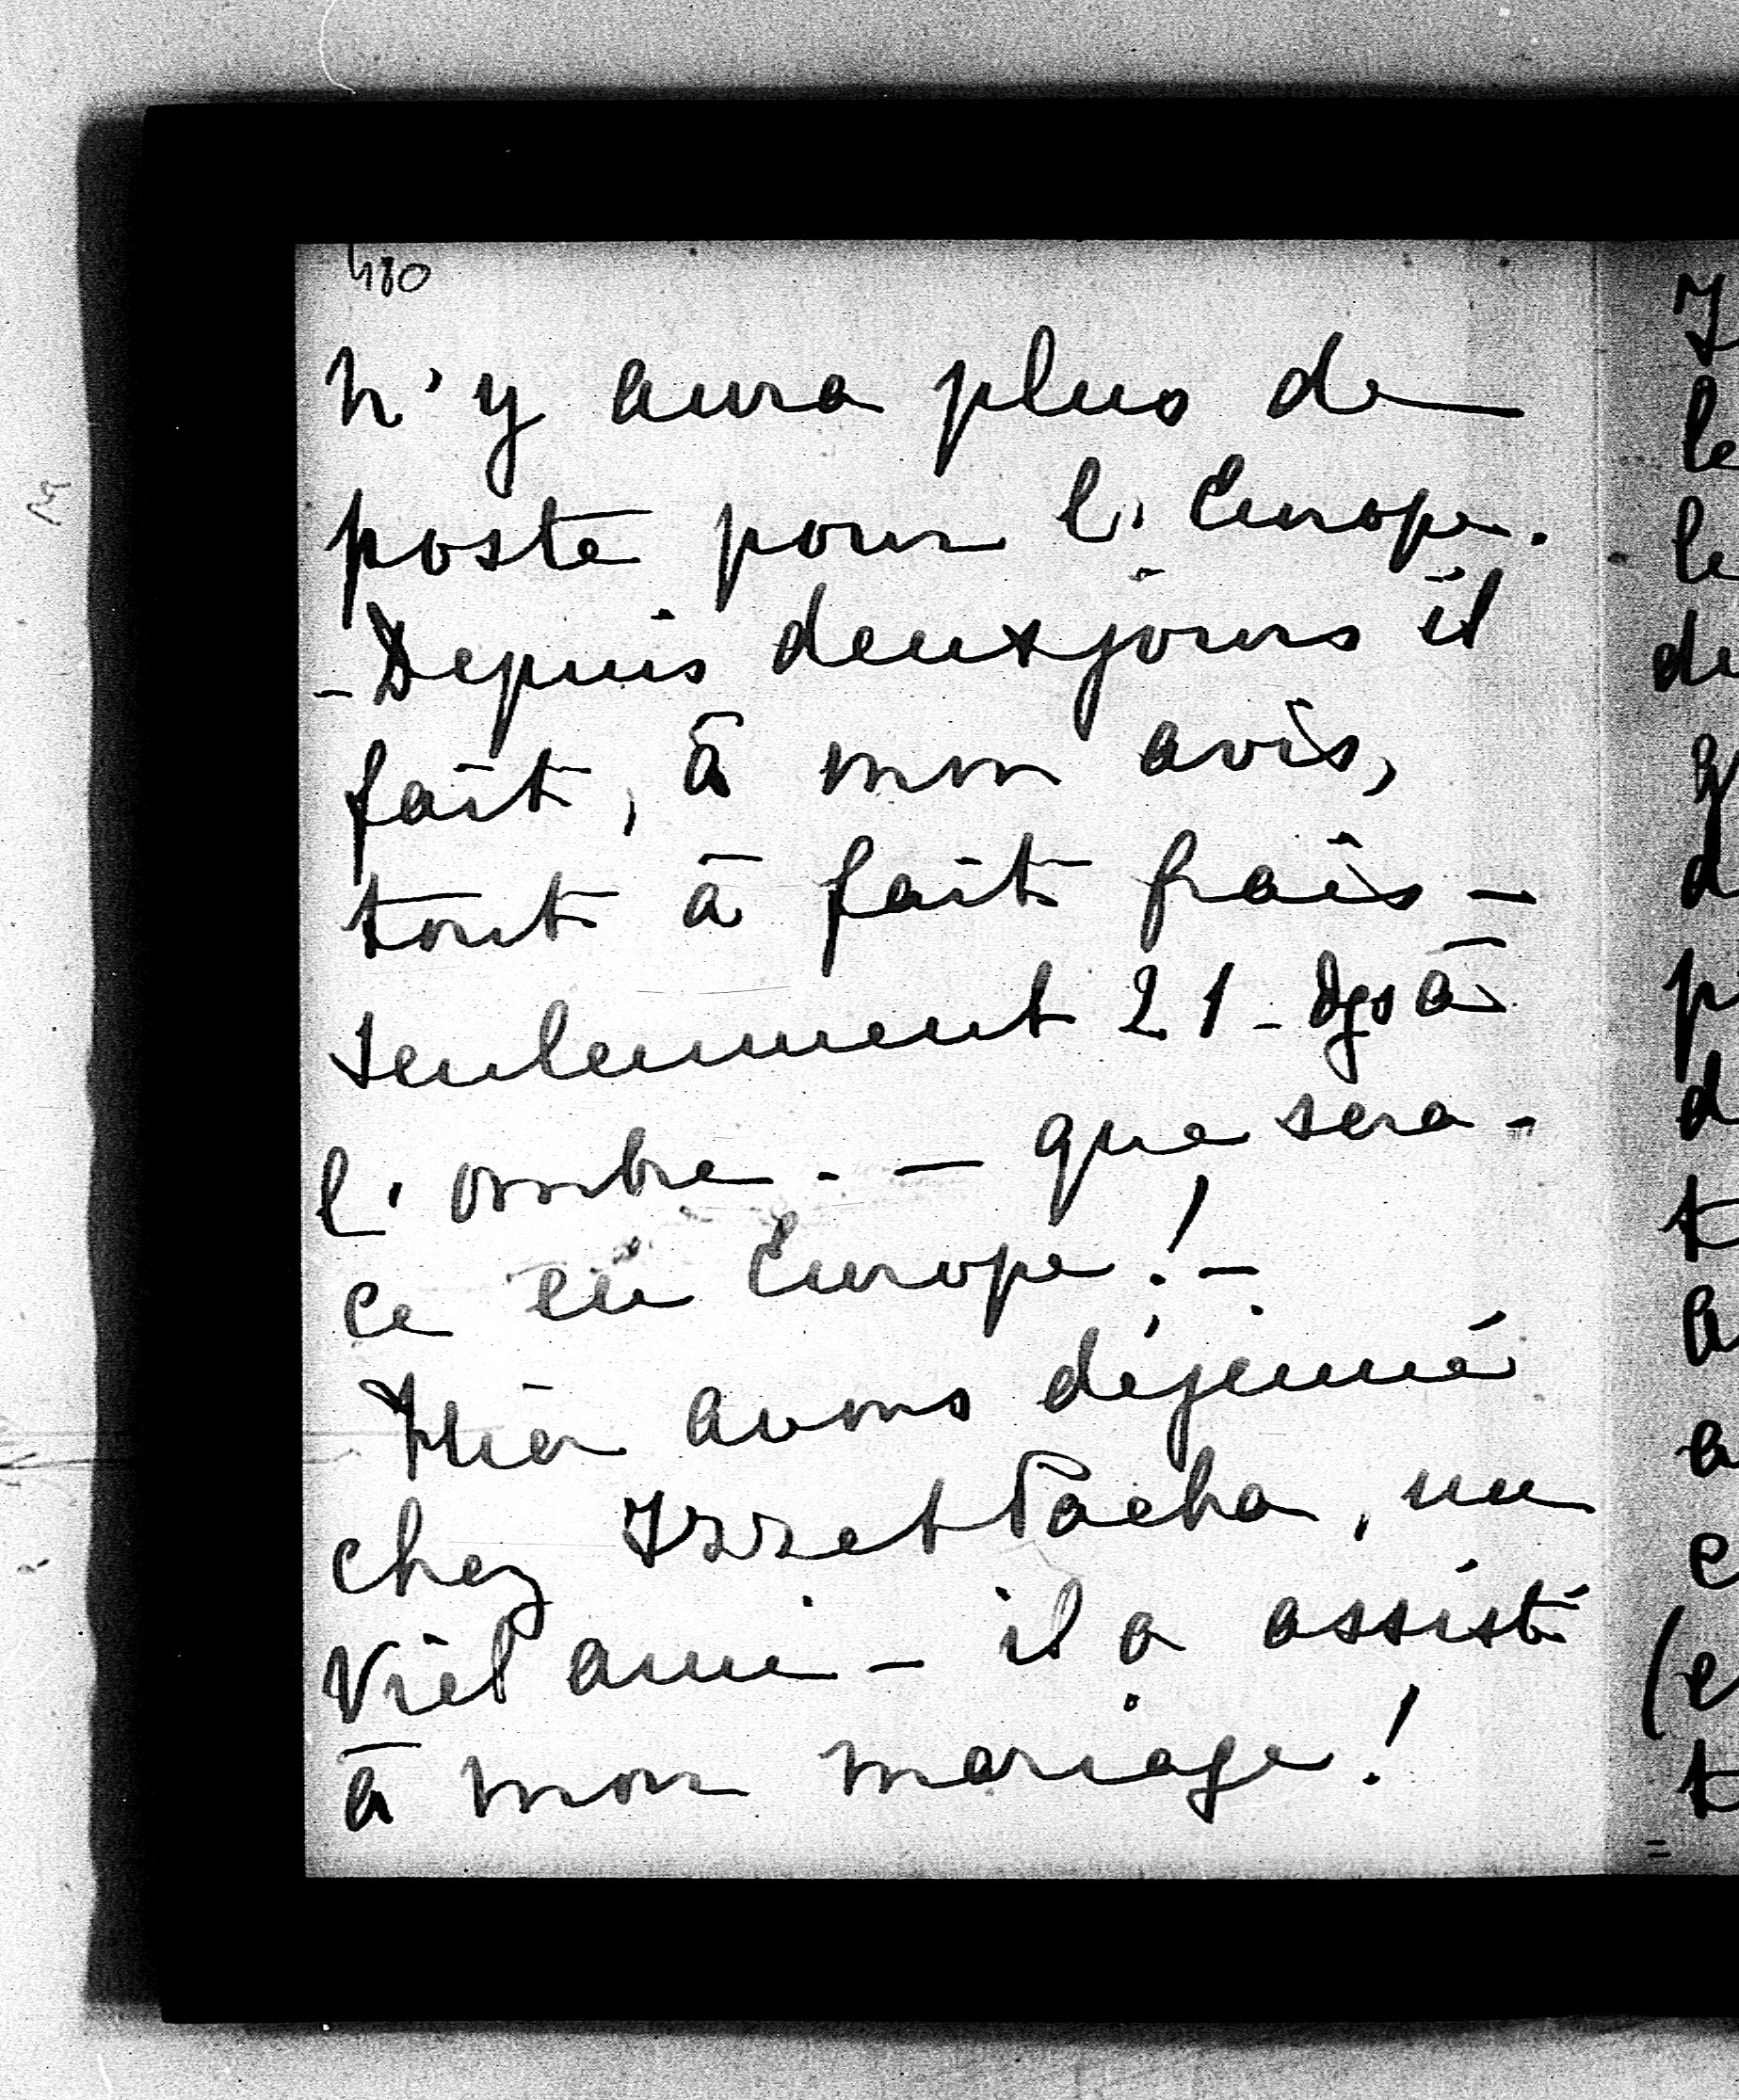 480
n'y aura plus de
poste pour l'Europe.
- Depuis deux jours il
fait, à mon avis,
tout à fait frais -
seulement 21 - dgs à
l'ombre. — que sera-
ce en Europe! -
Hier avons déjeuné
chez Izzet Pacha, un
vieil ami - il a assisté
à mon mariage!